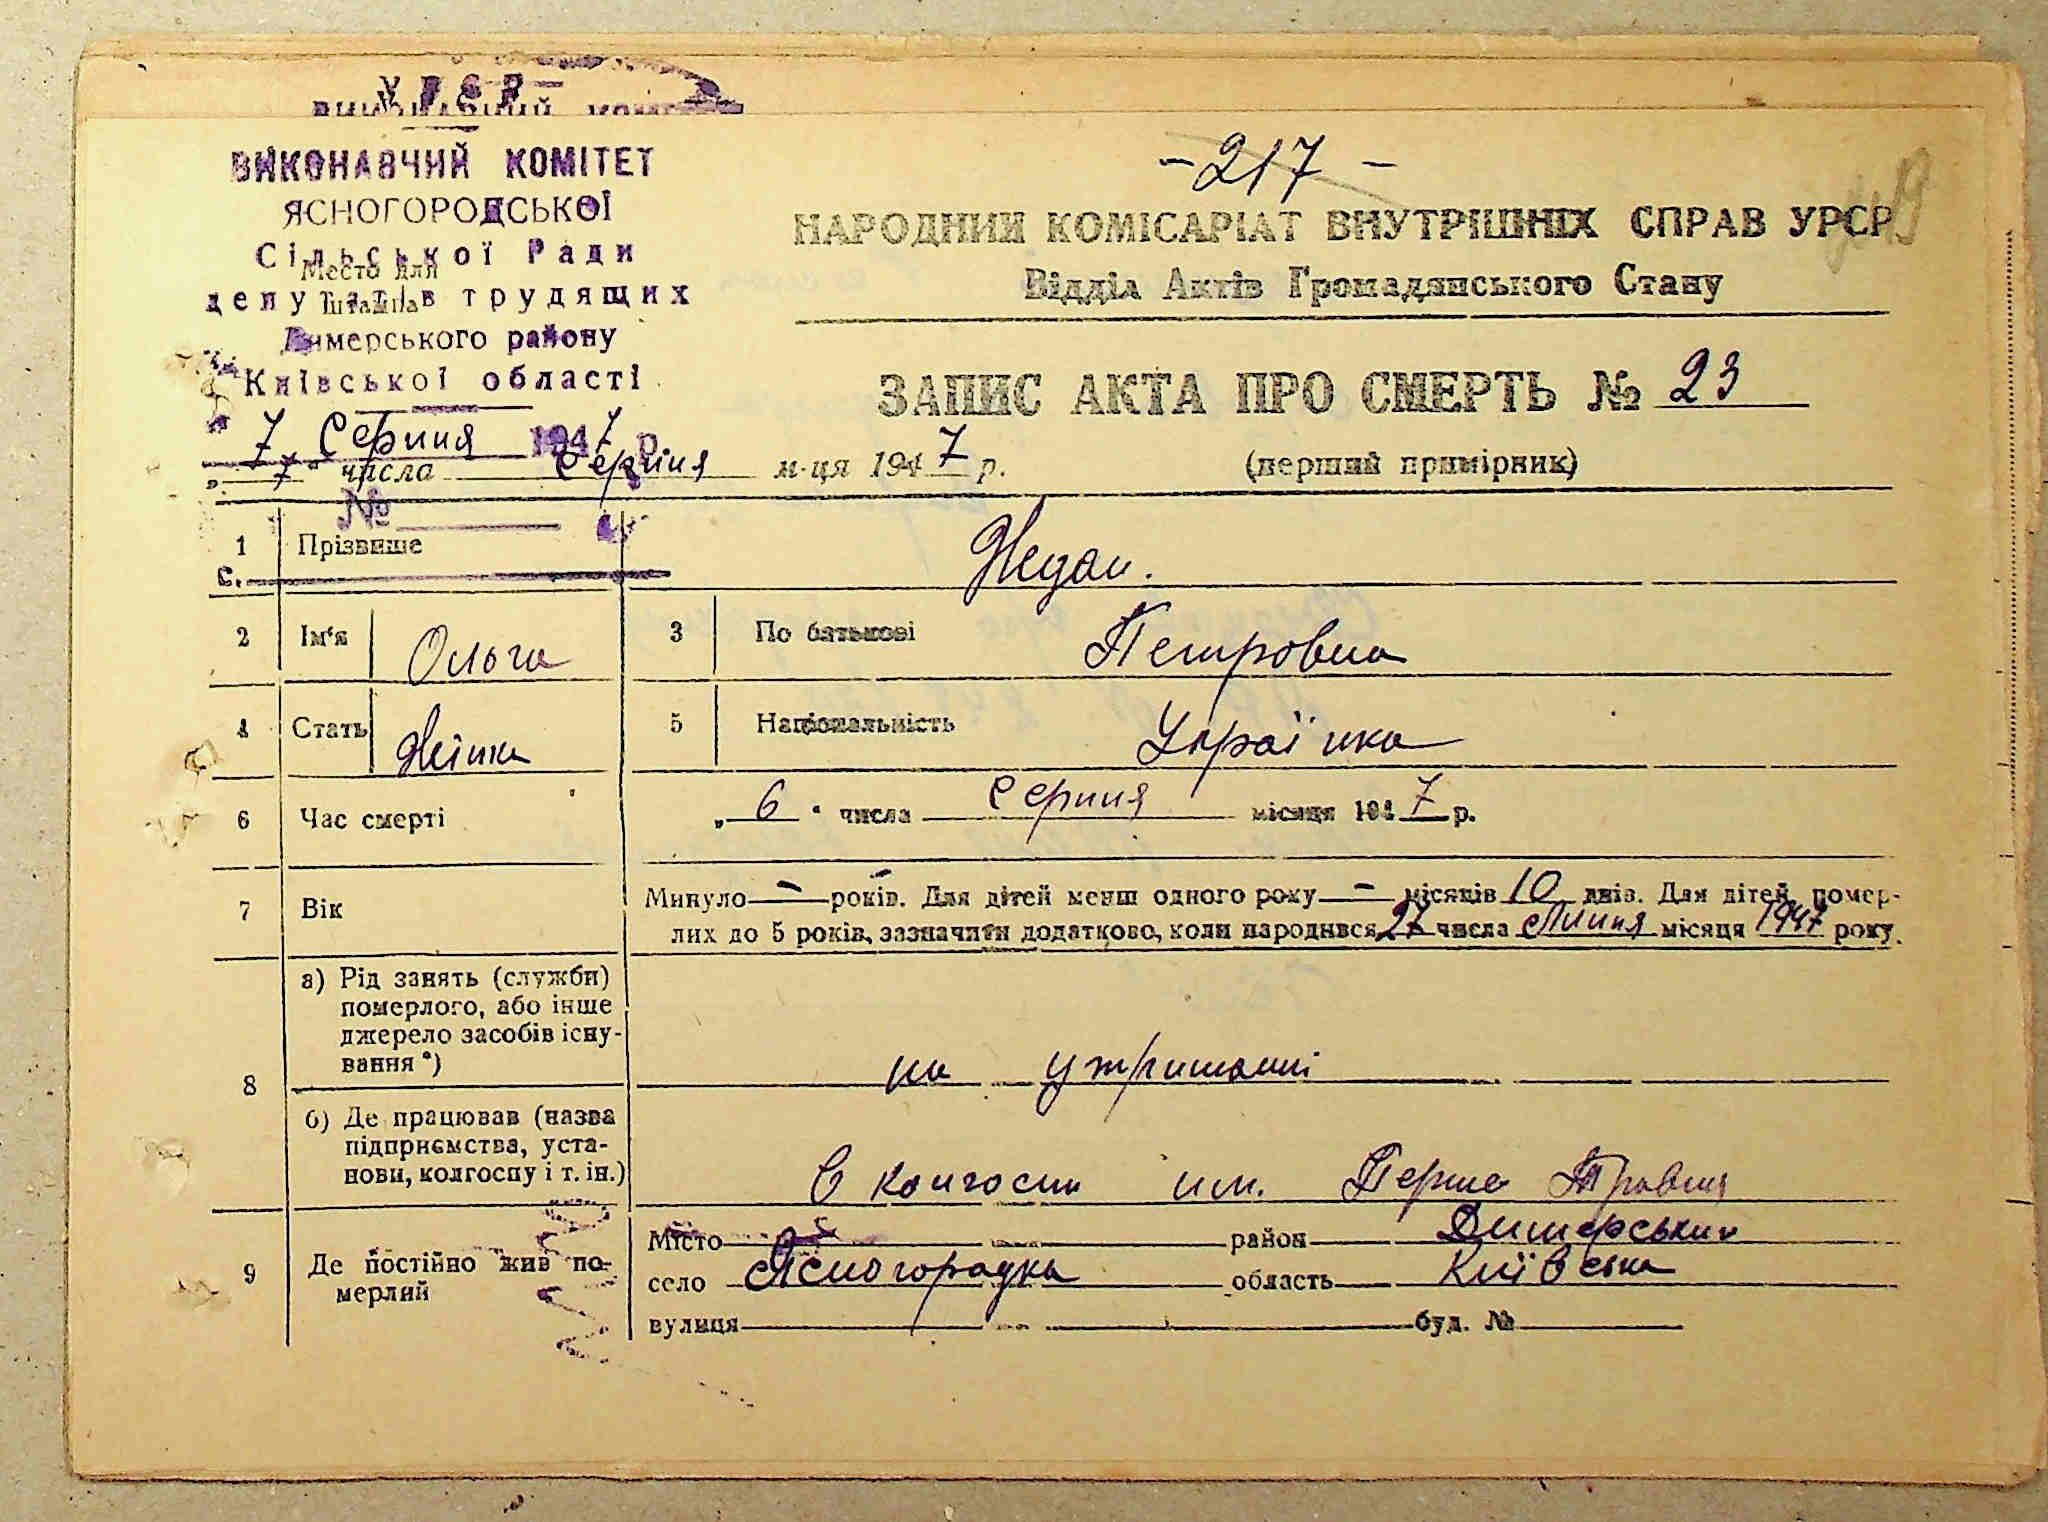 УРСР
ВИКОНАВЧИЙ КОМІ
ВИКОНАВЧИЙ КОМІТЕТ
ЯСНОГОРОДСЬКОЇ
Сільської Ради
Место для
депутатів трудящих
штампа
Димерського району
Київської області
7 Серпня 1947 р.
№
с.
- 217 -
НАРОДНИЙ КОМІСАРІАТ ВНУТРІШНІХ СПРАВ УРСР
Відділ Актів Громадянського Стану
ЗАПИС АКТА ПРО СМЕРТЬ № 23
„ 7 “ числа Серпня м-ця 1947 р. (перший примірник)
1 Прізвище
2 Ім'я Ольга 3 По батькові Петровна
4 Стать Жінка 5 Національність Українка
6 Час смерті „ 6 “ числа Серпня місяця 1947 р.
7 Вік Минуло - років. Для дітей менш одного року - місяців 10 днів. Для дітей, помер-
лих до 5 років, зазначити додатково, коли народився 27 числа Липня місяця 1947 року.
8 а) Рід занять (служби)
померлого, або інше
джерело засобів існу-
вання *) на утриманні
б) Де працював (назва
підприємства, уста-
нови, колгоспу і т. ін.) В колгоспи им. Перше Травня
9 Де постійно жив по-
мерлий
Місто район Димерський
село Ясногородка область Київська
вулиця буд. №